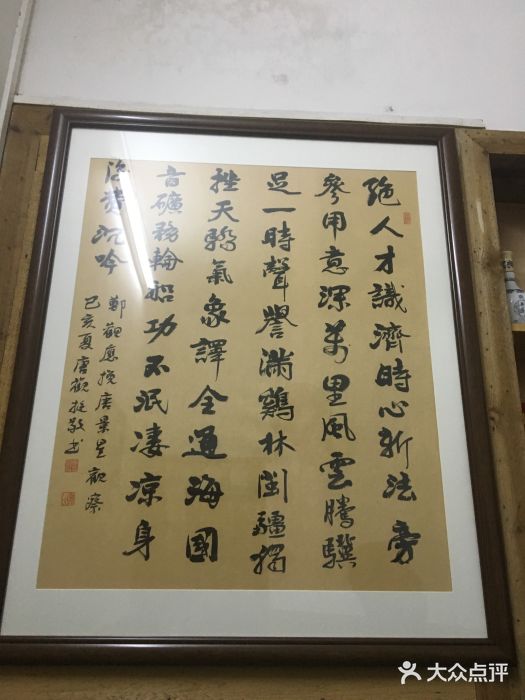 絶人才識濟時心新法旁
參用意深萬里風雲騰驥
足一時聲譽滿鷄林閩疆獨
挫天驕氣象譯全通海國
音礦務輪船功不泯凄凉身
後費沉吟
鄭觀應挽唐景星觀察
己亥夏唐觀挺敬书
大众点评